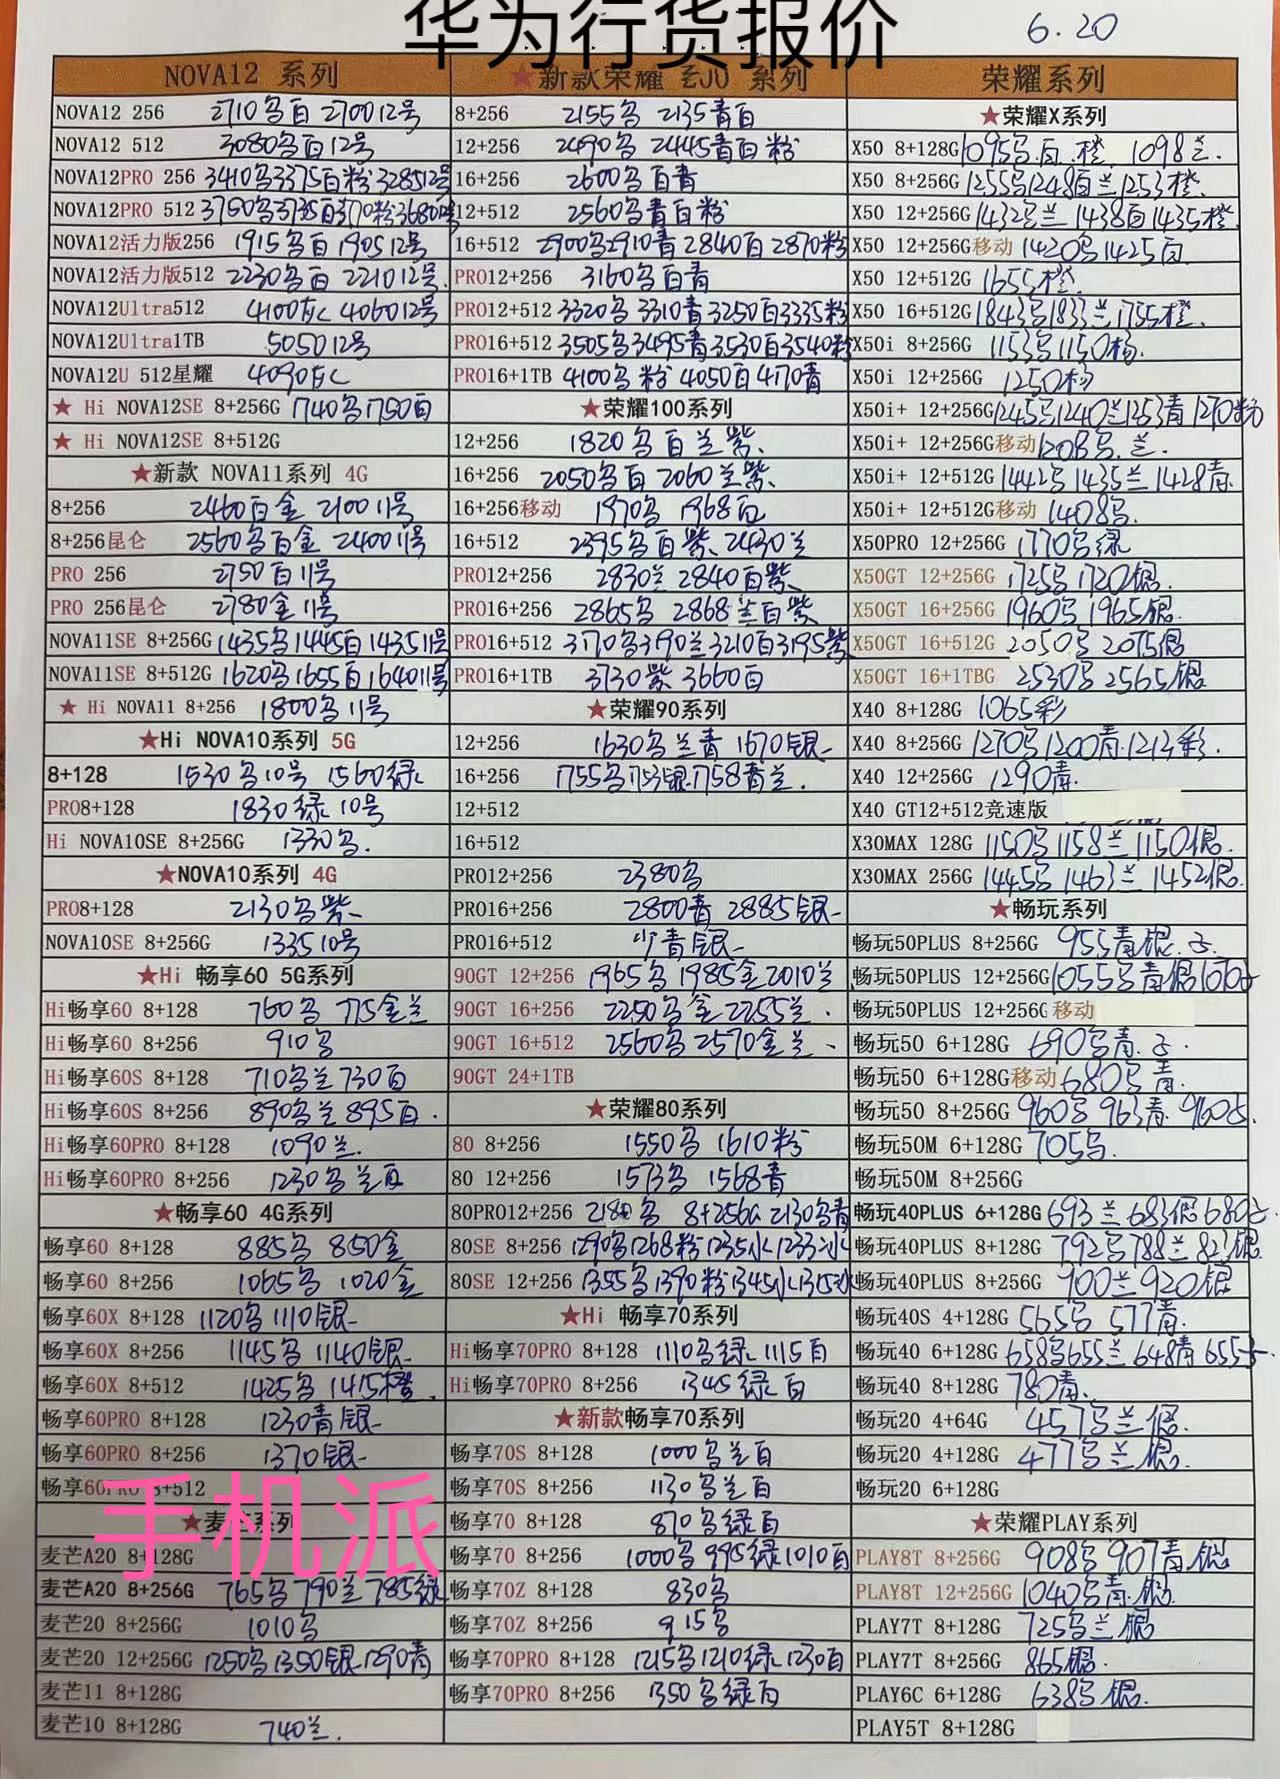 华为行货报价
6.20
NOVA12 系列
NOVA12 256 2710乌白 2700 12号
NOVA12 512 3080乌白12号
NOVA12PRO 256 3410乌3375白粉3285 12号
NOVA12PRO 512 3750乌3735白3770粉3680 12号
NOVA12活力版256 1915乌白 1905 12号
NOVA12活力版512 2230乌白 2210 12号.
NOVA12Ultra512 4100灰 4060 12号
NOVA12Ultra1TB 5050 12号
NOVA12U 512星耀 4090灰
★ Hi NOVA12SE 8+256G 1740乌1750白
★ Hi NOVA12SE 8+512G
★新款 NOVA11系列 4G
8+256 2460白金 2100 11号
8+256昆仑 2560乌白金 2400 11号
PRO 256 2750白11号
PRO 256昆仑 2780金11号
NOVA11SE 8+256G 1435乌1445白1435 11号
NOVA11SE 8+512G 1620乌1655白1640 11号
★ Hi NOVA11 8+256 1800乌11号
★Hi NOVA10系列 5G
8+128 1530乌10号 1560绿
PRO8+128 1830绿10号
Hi NOVA10SE 8+256G 1330乌.
★NOVA10系列 4G
PRO8+128 2130乌紫
NOVA10SE 8+256G 1335 10号
★Hi 畅享60 5G系列
Hi畅享60 8+128 760乌 775金兰
Hi畅享60 8+256 910乌
Hi畅享60S 8+128 710乌兰730白
Hi畅享60S 8+256 890乌兰895白.
Hi畅享60PRO 8+128 1090兰.
Hi畅享60PRO 8+256 1230乌兰白
★畅享60 4G系列
畅享60 8+128 885乌 850金
畅享60 8+256 1065乌 1020金
畅享60X 8+128 1120乌1110银
畅享60X 8+256 1145乌1140银
畅享60X 8+512 1425乌1415橙.
畅享60PRO 8+128 1230青银
畅享60PRO 8+256 1370银
畅享60PRO 8+512
手机派
★麦芒系列
麦芒A20 8+128G
麦芒A20 8+256G 765乌790兰785绿
麦芒20 8+256G 1010乌
麦芒20 12+256G 1250乌1350银1290青
麦芒11 8+128G
麦芒10 8+128G 740兰.
★新款荣耀 系列
8+256 2155乌 2135青白
12+256 2490乌 2445青白粉
16+256 2600乌白青
12+512 2560乌青白粉
16+512 2900乌2910青2840白2870粉
PRO12+256 3160乌白青
PRO12+512 3320乌3310青3250白3335粉
PRO16+512 3505乌3495青3530白3540粉
PRO16+1TB 4100乌粉4050白4170青
★荣耀100系列
12+256 1820乌白兰紫.
16+256 2050乌白 2060兰紫.
16+256移动 1970乌 1968白
16+512 2395乌白紫.2430兰
PRO12+256 2830兰2840白紫
PRO16+256 2865乌 2868兰白紫
PRO16+512 3170乌3190兰3210白3195紫
PRO16+1TB 3730紫3660白
★荣耀90系列
12+256 1630乌兰青 1670银
16+256 1755乌1753银1758青兰.
12+512
16+512
PRO12+256 2380乌
PRO16+256 2800青 2885银
PRO16+512 少青银
90GT 12+256 1965乌1985金2010兰
90GT 16+256 2250乌金2255兰.
90GT 16+512 2560乌2570金兰、
90GT 24+1TB
★荣耀80系列
80 8+256 1550乌 1610粉
80 12+256 1573乌 1568青
80PRO12+256 2180乌 8+256G 2130乌青
80SE 8+256 1290乌1268粉1235水1233冰
80SE 12+256 1355乌1390粉1345水1315冰
★Hi 畅享70系列
Hi畅享70PRO 8+128 1110乌绿1115白
Hi畅享70PRO 8+256 1345绿白
★新款畅享70系列
畅享70S 8+128 1000乌兰白
畅享70S 8+256 1130乌兰白
畅享70 8+128 870乌绿白
畅享70 8+256 1000乌995绿1010白
畅享70Z 8+128 830乌
畅享70Z 8+256 915乌
畅享70PRO 8+128 1215乌1210绿1230白
畅享70PRO 8+256 1350乌绿白
荣耀系列
★荣耀X系列
X50 8+128G 1095乌.白.橙. 1098兰.
X50 8+256G 1255乌1248白兰1253橙.
X50 12+256G 1432乌兰1438白1435橙.
X50 12+256G移动 1420乌1425白
X50 12+512G 1655橙.
X50 16+512G 1843乌1833兰1755橙.
X50i 8+256G 1153乌1150杨.
X50i 12+256G 1250杨
X50i+ 12+256G 1245乌1240兰1253青1270粉
X50i+ 12+256G移动 1208乌.兰.
X50i+ 12+512G 1442乌1435兰1428青.
X50i+ 12+512G移动 1408乌.
X50PRO 12+256G 1770乌绿
X50GT 12+256G 1725乌1720银.
X50GT 16+256G 1960乌1965银.
X50GT 16+512G 2050乌 2075银
X50GT 16+1TBG 2530乌2565银.
X40 8+128G 1065彩
X40 8+256G 1270乌1200青.1214彩.
X40 12+256G 1290青.
X40 GT12+512竞速版
X30MAX 128G 1150乌1158兰1150银.
X30MAX 256G 1445乌1463兰1452银.
★畅玩系列
畅玩50PLUS 8+256G 955青银.
畅玩50PLUS 12+256G 1055乌青银1070
畅玩50PLUS 12+256G移动
畅玩50 6+128G 690乌青.
畅玩50 6+128G移动 680乌青.
畅玩50 8+256G 960乌963青.960
畅玩50M 6+128G 705乌.
畅玩50M 8+256G
畅玩40PLUS 6+128G 693兰683银680
畅玩40PLUS 8+128G 792乌788兰823银
畅玩40PLUS 8+256G 900兰920银
畅玩40S 4+128G 565乌 577青.
畅玩40 6+128G 658乌655兰648青655
畅玩40 8+128G 780青.
畅玩20 4+64G 457乌兰银.
畅玩20 4+128G 477乌兰银.
畅玩20 6+128G
★荣耀PLAY系列
PLAY8T 8+256G 908乌907青.银
PLAY8T 12+256G 1040乌青.银.
PLAY7T 8+128G 725乌兰银
PLAY7T 8+256G 865银.
PLAY6C 6+128G 638乌银.
PLAY5T 8+128G